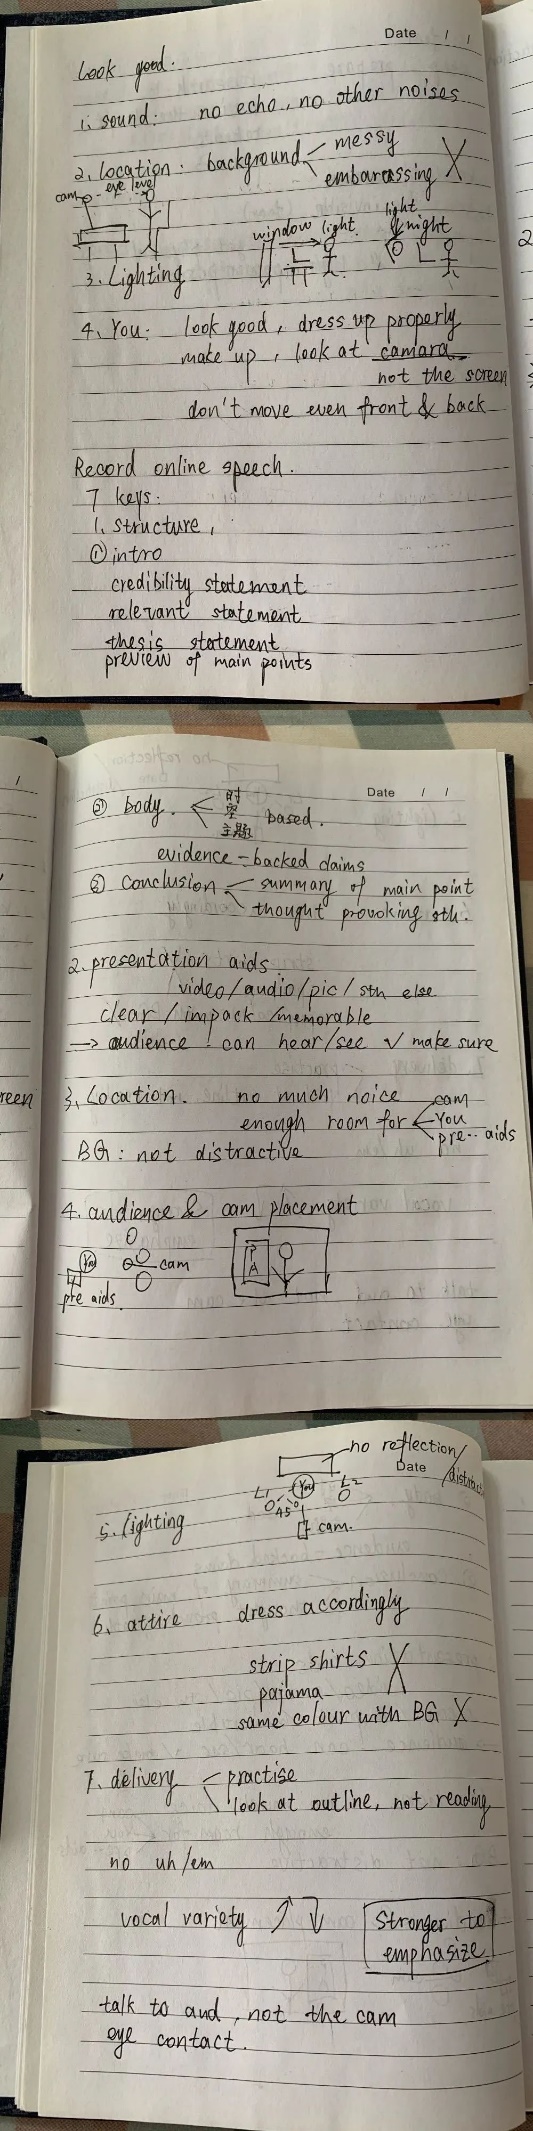 Date / /
Look good.
1. sound: no echo, no other noises
2. Location: background messy
embarassing X
cam eye level
window light light night
3. Lighting
4. You: look good, dress up properly
make up, look at camara
not the screen
don't move even front & back
Record online speech.
7 keys:
1. structure,
① intro
credibility statement
relevant statement
thesis statement
preview of main points
Date / /
② body. 时
空 based.
主题
evidence-backed claims
③ Conclusion summary of main point
thought provoking sth.
2. presentation aids
video/audio/pic/sth else
clear/impack/memorable
→ audience: can hear/see √ make sure
reen
3. Location. no much noice cam
enough room for You
pre.. aids
BG: not distractive
4. audience & cam placement
You cam
pre aids
P
A
no reflection/
Date /distract
L1 You L2
45°
5. lighting
cam.
6. attire dress accordingly
strip shirts X
pajama
same colour with BG X
7. delivery practise
look at outline, not reading
no uh/em
vocal variety Stronger to
emphasize
talk to aud, not the cam
eye contact.